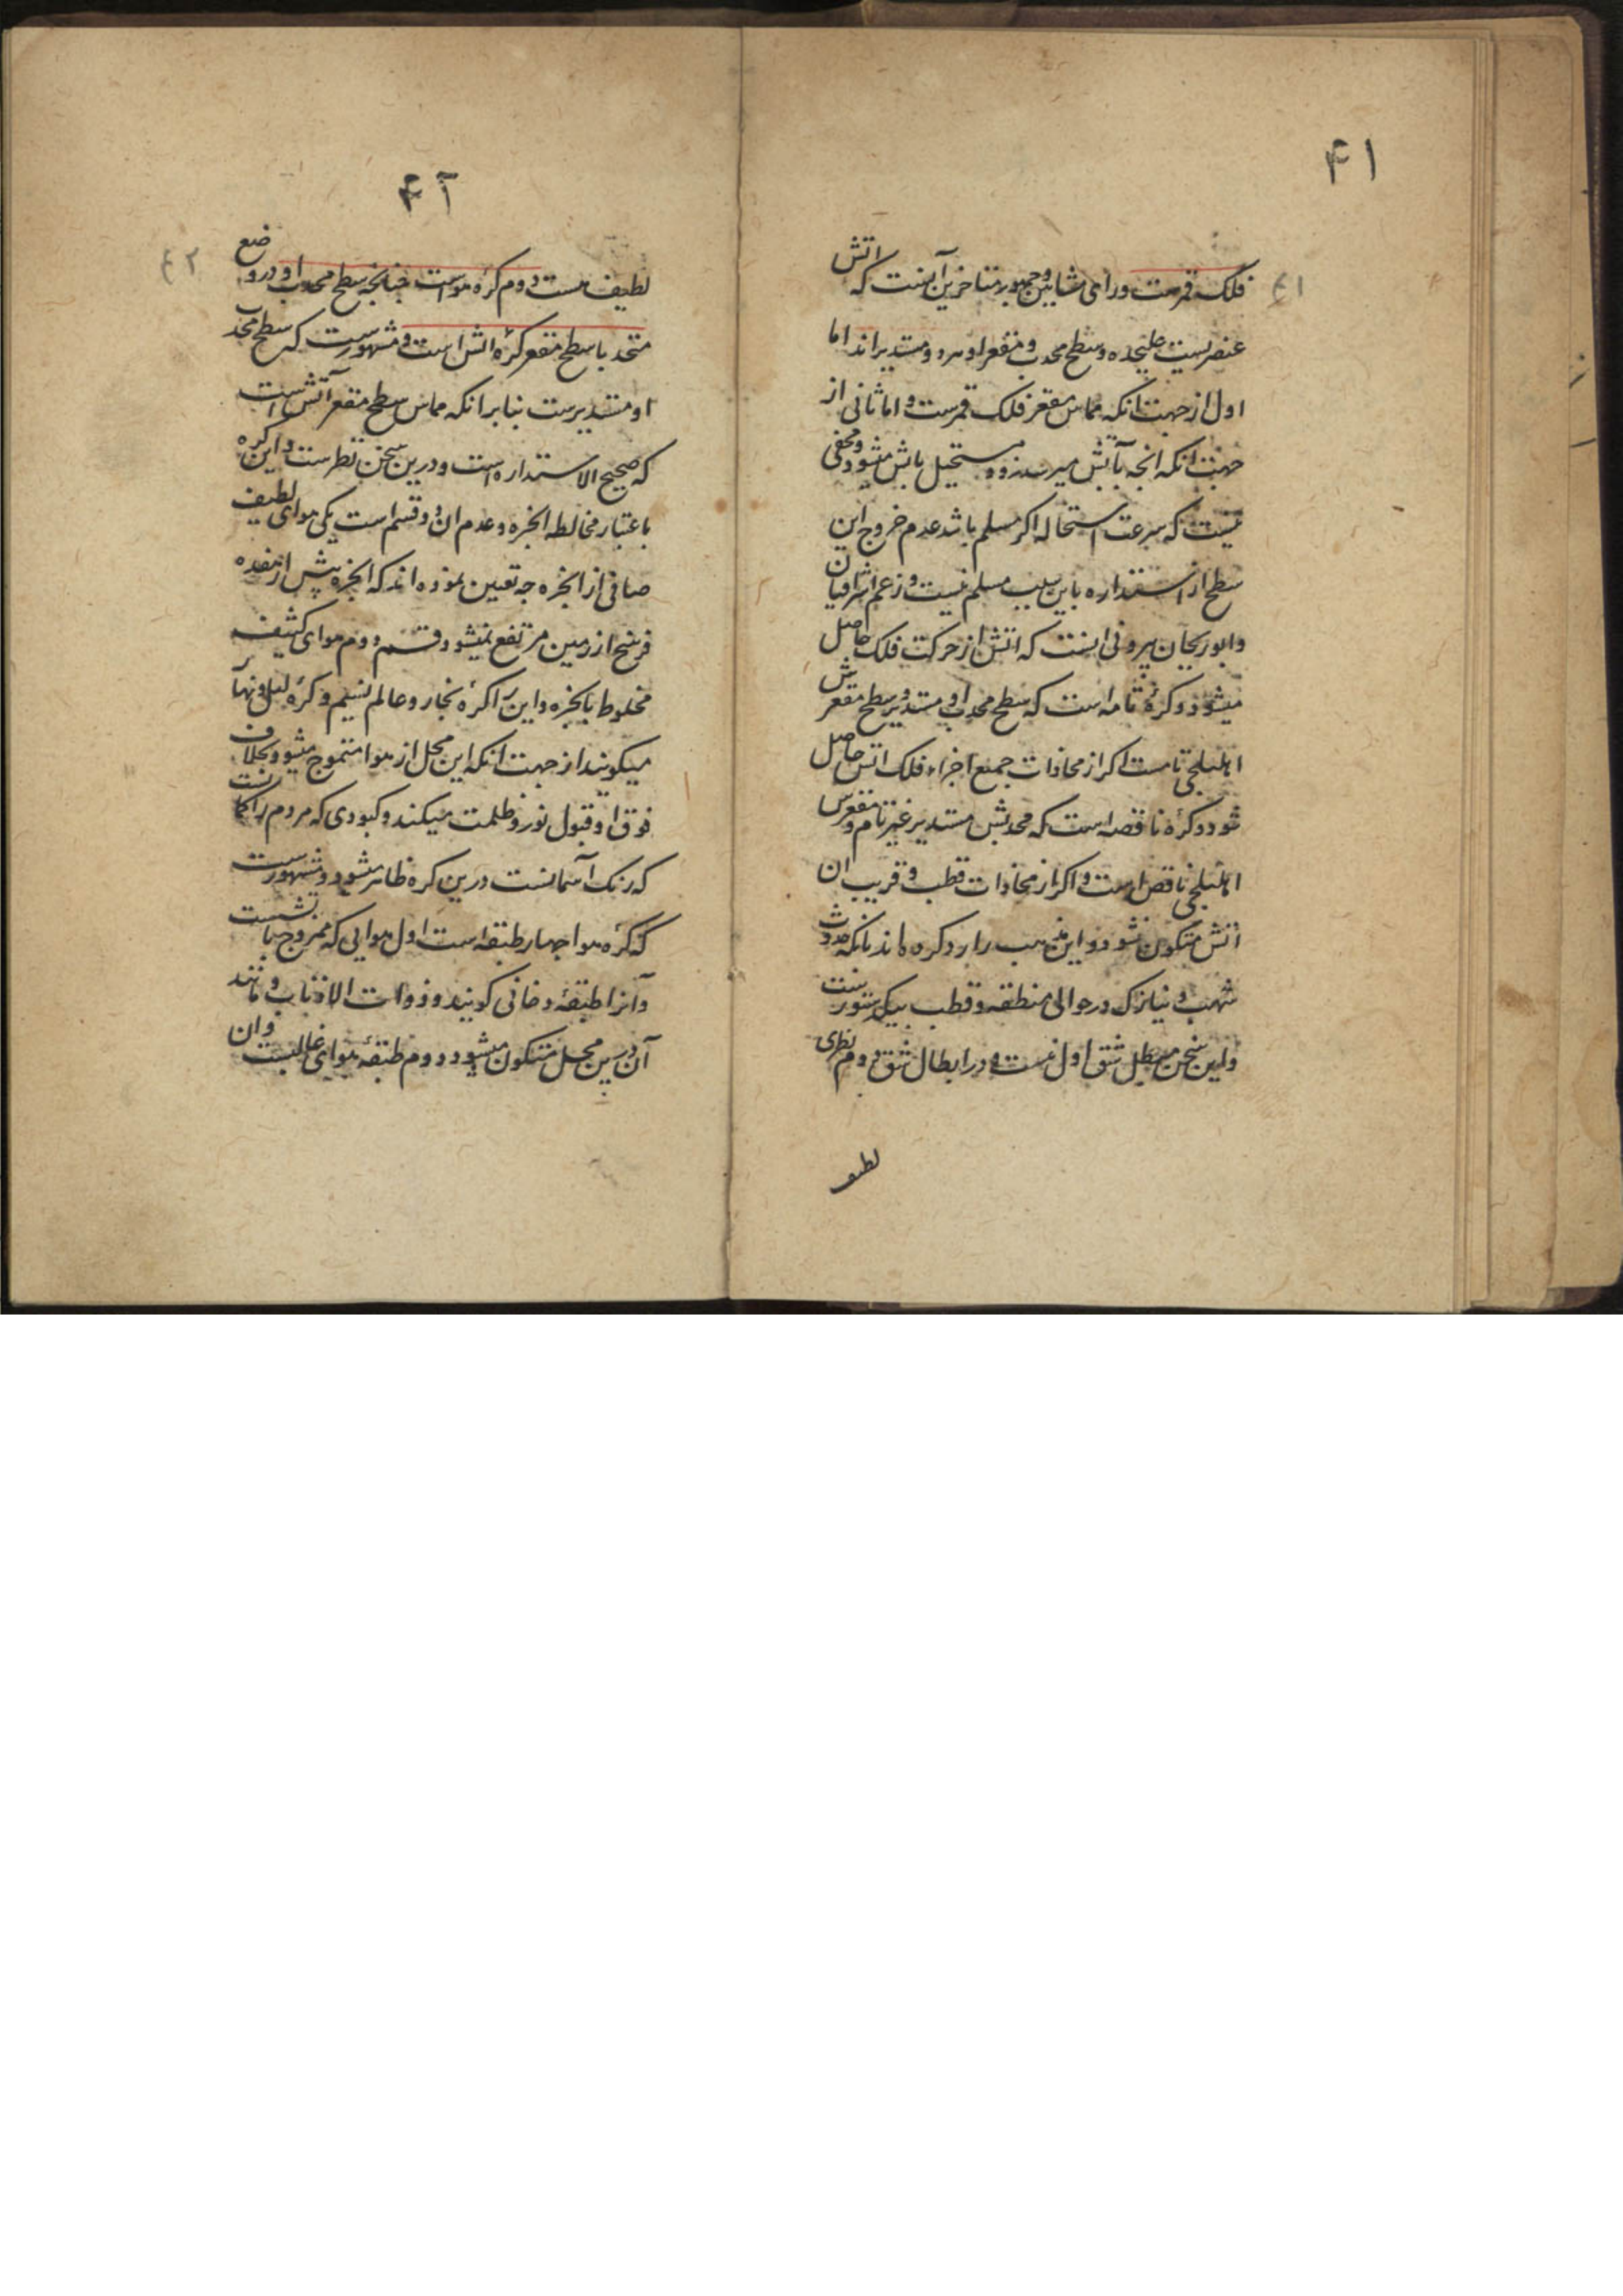 ۴۱
فلک قمرست و رای مشایین و جمهور متاخرین آنست که اتش
عنصریست علیحده و سطح محدب و مقعر او هر دو مستدیراند اما
اول از جهت انکه مماس مقعر فلک قمرست و اما ثانی از
جهت انکه انجه بآتش میرسد زود مستحیل باتش میشود و مخفی
نیست که سرعت استحاله اکر مسلم باشد عدم خروج این
سطح از استداره باین سبب مسلم نیست و زعم اشراقیان
و ابو ریحان بیرونی اینست که اتش از حرکت فلک حاصل
میشود و کرهٔ تامه است که سطح محدب او مستدیر و سطح مقعرش
اهلیلجی تامست اکر از محاذات جمیع اجزاء فلک اتش حاصل
شود و کرهٔ ناقصه است که محدبش مستدیر غیر تام و مقعرش
اهلیلجی ناقص است و اکر از محاذات قطب و قریب ان
اتش متکون نشود و این مذهب را رد کرده اند بانکه حدوث
شهب و نیازک در حوالی منطقه و قطب بیک دستورست
و این سخن مبطل شق اول نیست و در ابطال شق دوم نظری
لطیف
۴۲
لطیف هست دوم کرهٔ هواست جنانجه سطح محدب او در وضع
متحد با سطح مقعر کرهٔ اتش است و مشهورست که سطح محدب
او مستدیرست بنابر انکه مماس سطح مقعر آتش است
که صحیح الاستداره است و درین سخن نظرست و این کره
باعتبار مخالطه ابخره و عدم ان دو قسم است یکی هوای لطیف
صافی از ابخره جه تعیین نموده اند که ابخره بیش از هفده
فرسخ از زمین مرتفع نمیشود و قسم دوم هوای کثیف
مخلوط بابخره و این را کرهٔ بخار و عالم نسیم و کرهٔ لیل و نهار
میکویند از جهت انکه این محل از هوا متموج میشود بخلاف
فوق او و قبول نور و ظلمت میکند و کبودی که مردم را کمانست
که رنک آسمانست درین کره ظاهر میشود و مشهورست
که کرهٔ هوا جهار طبقه است اول هوایی که ممزوج باتشست
و آنرا طبقهٔ دخانی کویند و ذوات الاذناب و مانند
آن درین محل متکون میشود دوم طبقهٔ هوای غالبست و ان